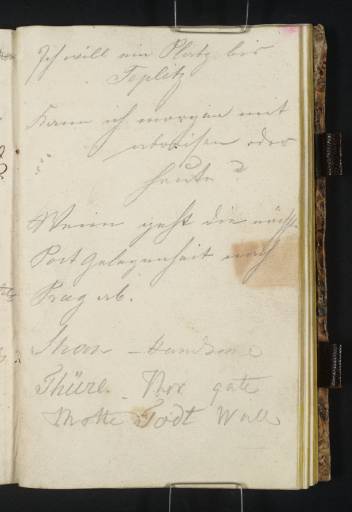 Ich will ein Platz bis
Teplitz
Kann ich morgen mit
abreisen oder
heute?
Wenn geht die nächste
Post gelegenheit nach
Prag ab.
Handsome
Thüre. Thor gate
Todt Wall